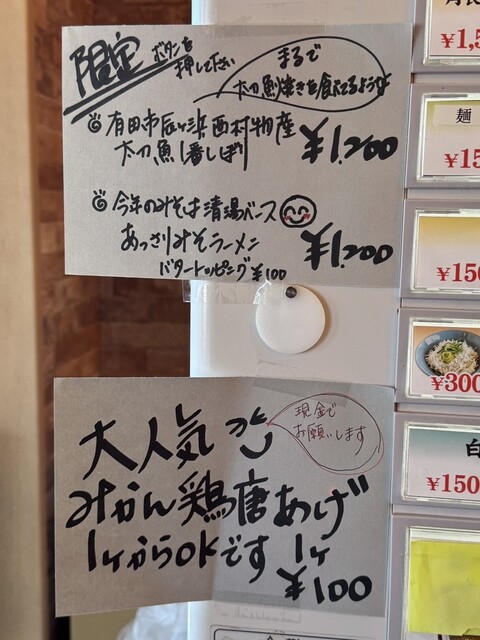 限定 ボタンを
押して下さい
まるで
太刀魚焼きを食べてるような
有田市辰ヶ浜西村物産
太刀魚1番しぼり ¥1,200
今年のみそは清湯ベース
あっさりみそラーメン ¥1,200
バタートッピング¥100
大人気
現金で
お願いします
みかん鶏唐あげ
1ヶからOKです 1ヶ
¥100
¥1,5
麺
¥15
¥150
¥300
白
¥150